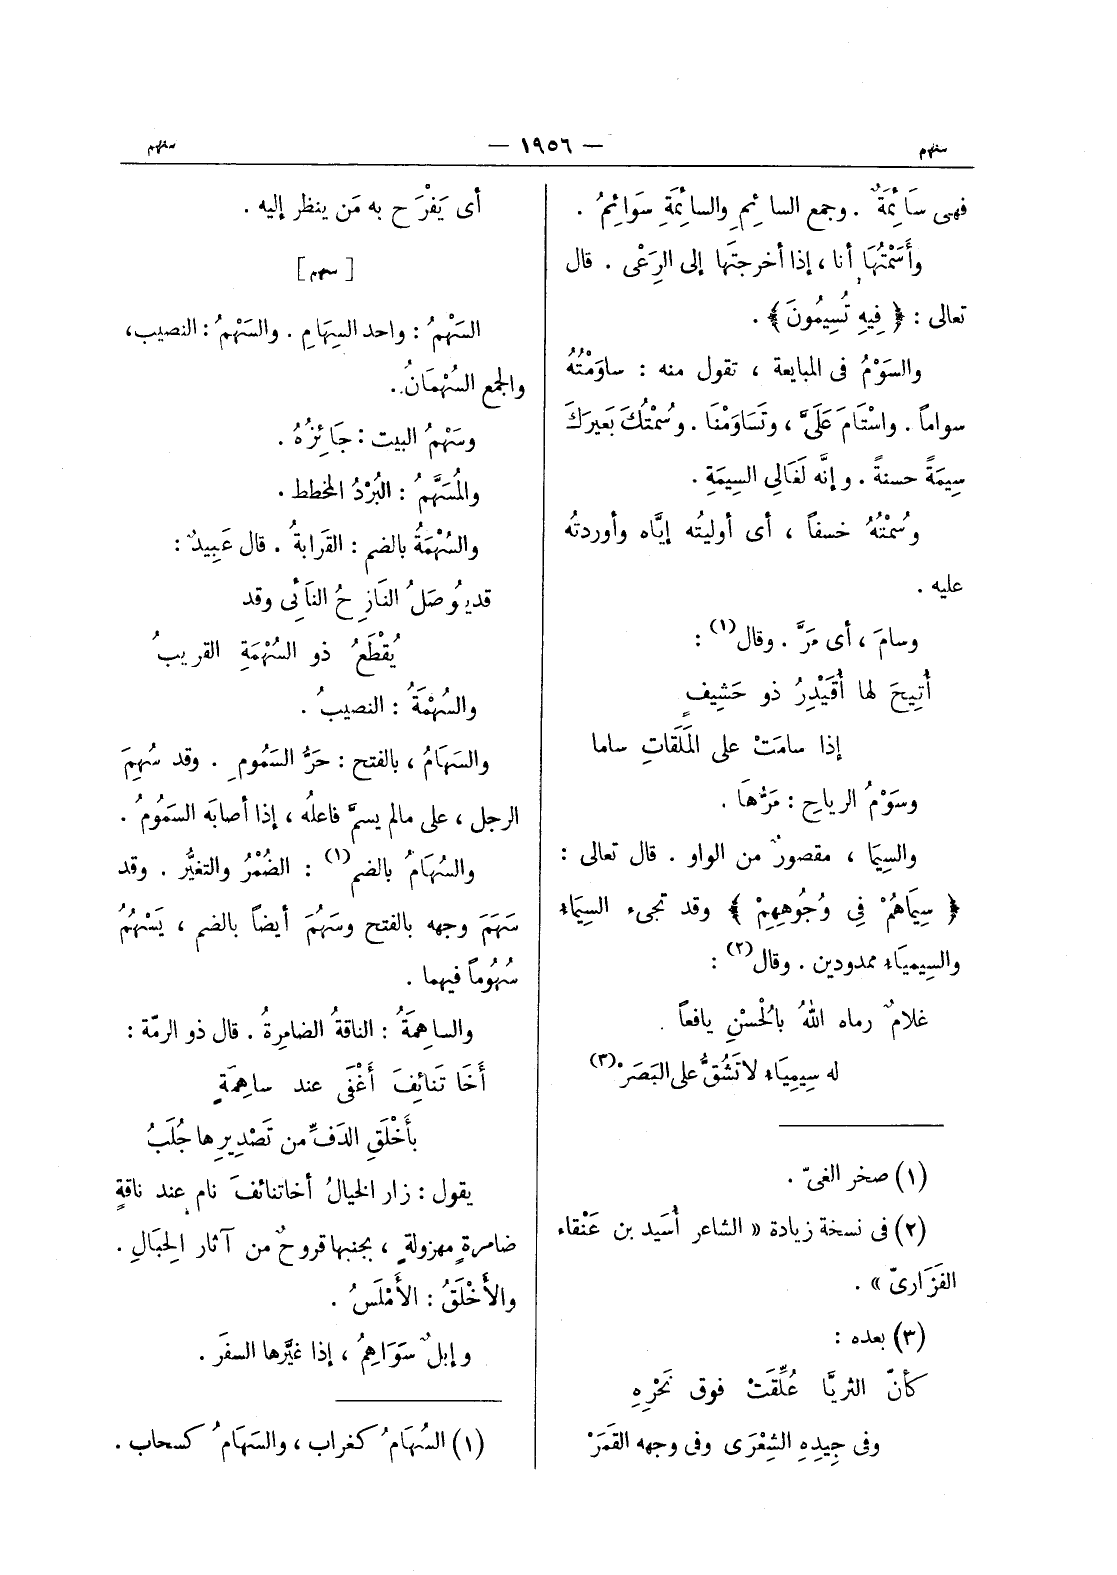 سهم
— ١٩٥٦ —
سهم
فهى سَائِمَةٌ . وجمع السائِمِ والسائِمَةِ سَوَائِمُ .
وأَسَمْتُهَا أنا ، إذا أخرجتَها إلى الرَعْى . قال
تعالى : ﴿ فِيهِ تُسِيمُونَ ﴾ .
والسَوْمُ فى المبايعة ، تقول منه : ساوَمْتُهُ
سواماً . واسْتَامَ عَلَىَّ ، وتَسَاوَمْنَا . وسُمْتُكَ بَعيرَكَ
سِيمَةً حسنةً . وإنَّه لَغَالِى السِيمَةِ .
وسُمْتُهُ خسفاً ، أى أوليتُه إيَّاه وأوردتُه
عليه .
وسامَ ، أى مَرَّ . وقال (١) :
أُتِيحَ لها أُقَيْدِرُ ذو حَشِيفٍ
إذا سامَتْ على المَلَقاتِ ساما
وسَوْمُ الرياحِ : مَرُّهَا .
والسِيمَا ، مقصورٌ من الواو . قال تعالى :
﴿ سِيمَاهُمْ فِى وُجُوهِهِمْ ﴾ وقد تجىء السِيمَاءُ
والسِيمِيَاء ممدودين . وقال (٢) :
غلامٌ رماه اللهُ بالْحُسْنِ يافعاً .
له سِيمِيَاء لا تَشُقُّ على البَصَرْ (٣)
(١) صخر الغىّ .
(٢) فى نسخة زيادة « الشاعر أُسَيد بن عَنْقاء
الفَزَارىّ » .
(٣) بعده :
كأنّ الثريَّا عُلِّقَتْ فوق نَحْرِهِ
وفى جِيدِهِ الشِعْرَى وفى وجهه القَمَرْ
أى يَفْرَح به مَن ينظر إليه .
[ سهم ]
السَهْمُ : واحد السِهَامِ . والسَهْمُ : النصيب،
والجمع السُهْمَانُ .
وسَهْمُ البيت : جَائِزُهُ .
والمُسَهَّمُ : البُرْدُ المخطط .
والسُهْمَةُ بالضم : القرابةُ . قال عَبِيدٌ :
قد يُوصَلُ النَازِحُ النَائِى وقد
يُقْطَعُ ذو السُهْمَةِ القريبُ
والسُهْمَةُ : النصيبُ .
والسَهَامُ ، بالفتح : حَرُّ السَمُومِ . وقد سُهِمَ
الرجل ، على مالم يسمَّ فاعلُه ، إذا أصابَه السَمُومُ .
والسُهَامُ بالضم (١) : الضُمْرُ والتغيُّر . وقد
سَهَمَ وجهه بالفتح وسَهُمَ أيضاً بالضم ، يَسْهُمُ
سُهُوماً فيهما .
والساهِمَةُ : الناقةُ الضامِرةُ . قال ذو الرمّة :
أَخَا تَنائِفَ أَغْفَى عند ساهِمَةٍ
بأَخْلَقِ الدَفِّ من تَصْدِيرِها جُلَبُ
يقول : زار الخيالُ أخاتنائفَ نام عند ناقةٍ
ضامرةٍ مهزولةٍ ، بجنبها قروحٌ من آثار الحِبَالِ .
والأَخْلَقُ : الأَمْلَسُ .
وإبلٌ سَوَاهِمُ ، إذا غيَّرها السفَر .
(١) السُهَامُ كغراب ، والسَهَامُ كسحاب .